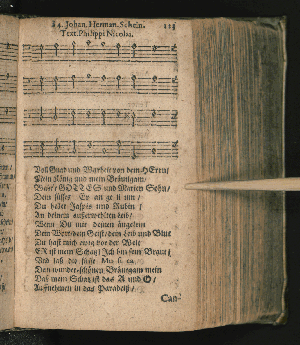 84. Johan. Herman. Schein. 113
Text. Philippi Nicolai.
Voll Gnad und Warheit von dem HErrn/
Mein König und mein Bräutigam/
GOTTES und Marien Sohn/
Dein süsses Ev an ge li um /
Du heller Jaspis und Rubin /
An deinem außerwehlten Leib/
Wenn Du mit deinen äugelein
Dein Wort/ dein Geist/ dein Leib und Blut
Du hast mich ewig vor der Welt
ER ist mein Schatz/ Ich bin sein Braut/
Und laß die süsse Mu si ca
Dem wunder-schönen Bräutgam mein
Daß mein Schatz ist das A und O/
Aufnehmen in das Paradeiß/
Can-